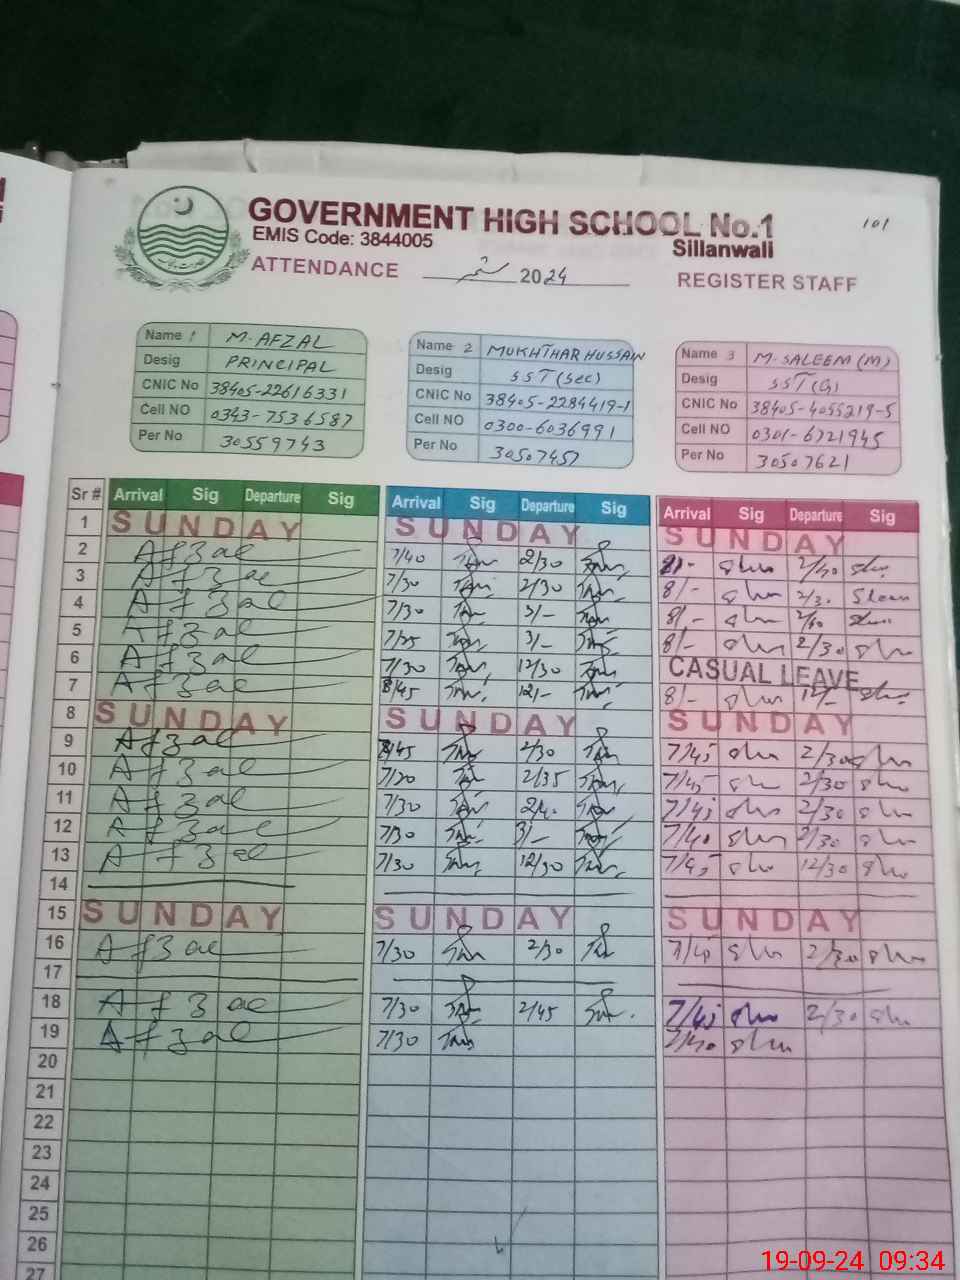 GOVERNMENT HIGH SCHOOL No.1
101
EMIS Code: 3844005
Sillanwali
ATTENDANCE ستمبر 2024 REGISTER STAFF
Name 1 M. AFZAL
Desig PRINCIPAL
CNIC No 38405-22616331
Cell NO 0343-7536587
Per No 30559743
Name 2 MUKHTHAR HUSSAIN
Desig SST (Sec)
CNIC No 38405-2284419-1
Cell NO 0300-6036991
Per No 30507457
Name 3 M. SALEEM (M)
Desig SST (G)
CNIC No 38405-4055219-5
Cell NO 0301-6721945
Per No 30507621
Sr # Arrival Sig Departure Sig Arrival Sig Departure Sig Arrival Sig Departure Sig
1 SUNDAY SUNDAY SUNDAY
2 Afzal 7/40 2/30
3 Afzal 7/30 2/30 8/-
4 Afzal 7/30 3/- 8/-
5 Afzal 7/25 3/- 8/- 2/30
6 Afzal 7/30 12/30 CASUAL LEAVE
7 Afzal 8/45 12/- 8/- 12/-
8 SUNDAY SUNDAY SUNDAY
9 Afzal 2/30 7/45 2/30
10 Afzal 7/20 2/35 7/45 2/30
11 Afzal 7/30 7/45 2/30
12 Afzal 7/30 3/- 7/40 2/30
13 Afzal 7/30 12/30 7/45 12/30
14
15 SUNDAY SUNDAY SUNDAY
16 Afzal 7/30 2/30 7/45 2/30
17
18 Afzal 7/30 2/45 7/45 2/30
19 Afzal 7/30 7/40
20
21
22
23
24
25
26
27
19-09-24 09:34